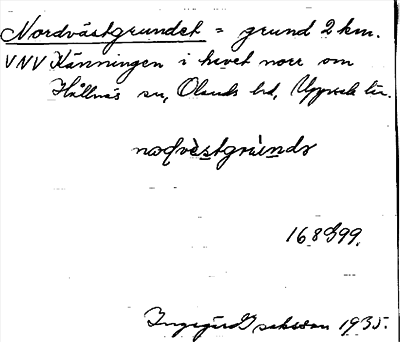 Nordvästgrundet = grund 2 km.
VNV Känningen i havet norr om
Hållnäs sn, Olands hd, Uppsala län.
168 99.
Ingegärd Isaksson 1935.